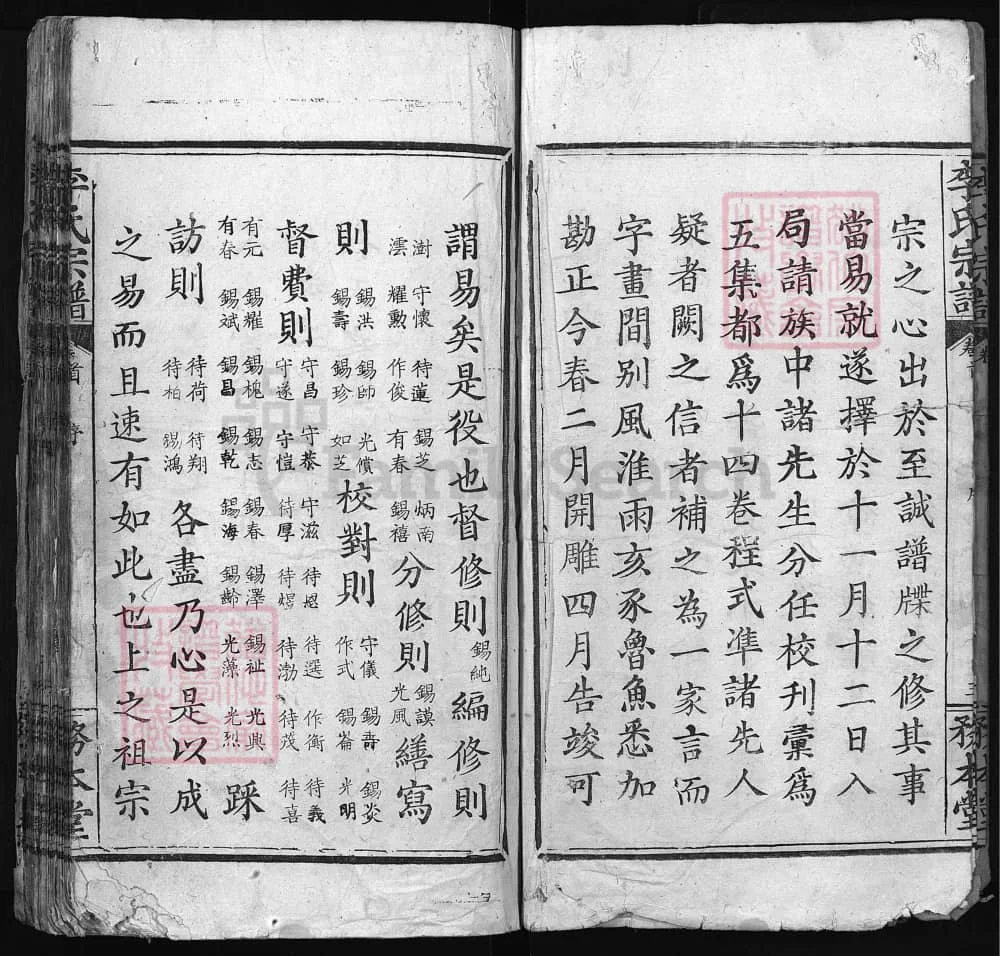 宗之心出於至誠譜牒之修其事
當易就遂擇於十一月十二日入
局請族中諸先生分任校刊彙爲
五集都爲十四卷程式準諸先人
疑者闕之信者補之為一家言而
字畫間别風淮雨亥豕魯魚悉加
勘正今春二月開雕四月告竣可
謂易矣是役也督修則錫純編修則
澍 守懷 待蓮 錫芝 炳南
澐 耀勲 作俊 有春 錫禧
分修則
錫謨
光風
繕寫
則
錫洪 錫師 光償
錫壽 錫珍 如芝
校對則
守儀 錫壽 錫炎
作式 錫崙 光明
督費則
守昌 守恭 守滋 待熜 待選 作衡 待義
守遂 守愷 待厚 待熤 待渤 待茂 待喜
有元 錫耀 錫槐 錫志 錫春 錫澤 錫祉 光興
有春 錫斌 錫昌 錫乾 錫海 錫齡 光藻 光烈
踩
訪則
待荷 待翔
待柏 錫鴻
各盡乃心是以成
之易而且速有如此也上之祖宗
李氏宗譜
卷首
序
務本堂
李氏宗譜
務本堂